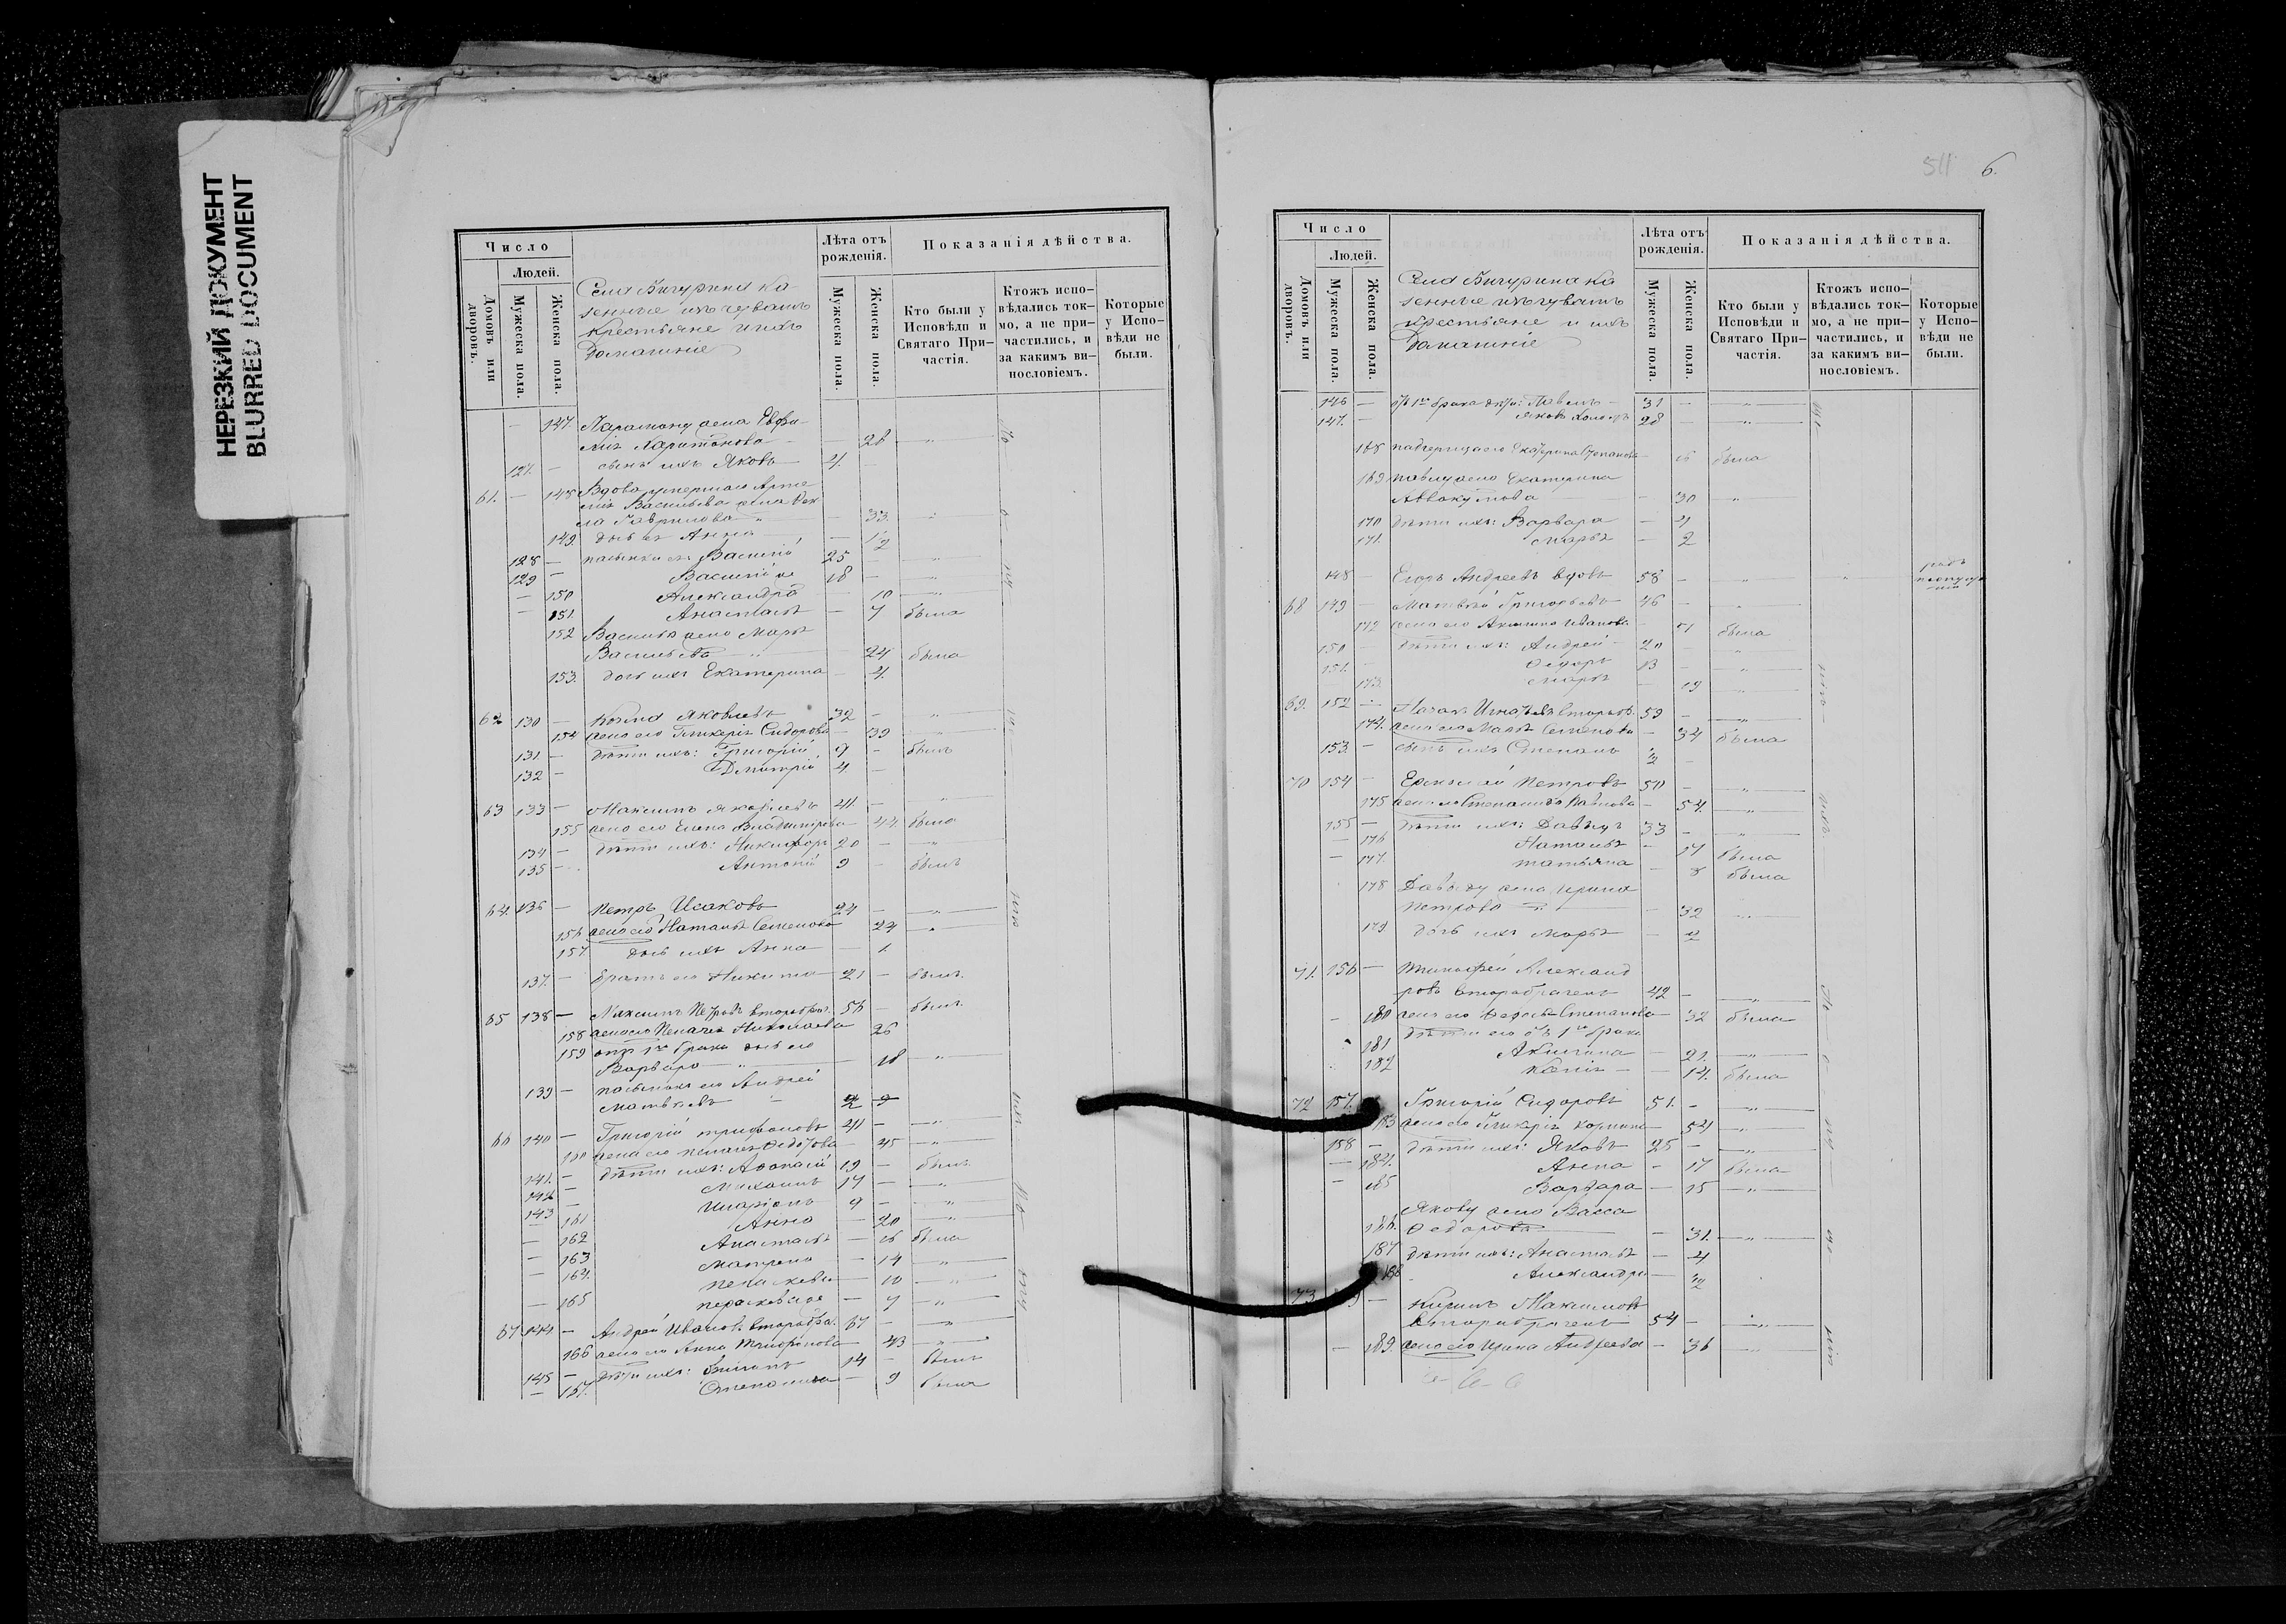 НЕРЕЗКИЙ ДОКУМЕНТ
BLURRED DOCUMENT
Число
Людей.
Домовъ или дворовъ.
Мужеска пола.
Женска пола.
Села Бичурина ка-
зенные изъ чувашъ
крестьяне и ихъ
домашніе
Лѣта отъ рожденія.
Мужеска пола.
Женска пола.
Показанія дѣйства.
Кто были у Исповѣди и Святаго Причастія.
Ктожъ исповѣдались токмо, а не причастились, и за какимъ винословіемъ.
Которые у Исповѣди не были.
— 147. Парамону жена Евфи-
мія Харитонова — 28 — „ —
127. — сынъ ихъ Яковъ 4. —
61. — 148 Вдова умершаго Арте
мія Васильева жена Фек
ла Гаврилова — 33. „
149. дочь ея Анна — 1/2
128 — пасынки ея Василій 25 — „
129 — Василій же 18 — „
— 150 Александра — 10 — „ —
— 151. Анастасія — 7 была
152 Василія жена Марья
Васильева — „ — 24 была
153. дочь ихъ Екатерина — 4.
62 130 — Козма Яковлевъ 32 — „
154 жена его Гликерія Сидорова — 39 — „
131 — дѣти ихъ: Григорій 9 — былъ
132 — Дмитрій 4. —
63 133 — Максимъ Яковлевъ 41 — „
155 жена его Елена Владимирова — 44. была
134 — дѣти ихъ: Никифоръ 20 — „
135 — Антоній 9 — былъ
64. 136 — Петръ Исаковъ 24 — „
156 жена его Наталья Семенова 24 „
157. дочь ихъ Анна — 1.
137. — Братъ его Никита 21 — былъ.
65 138 — Максимъ Петровъ второбрач. 56 — былъ
158 жена его Пелагея Николаева 26
159 отъ 1го брака дочь его
Варвара — „ — 18 „
139 — пасынокъ его Андрей
Матвѣевъ 2
66 140 — Григорій Трифоновъ 41 — „
160 жена его Пелагея Федотова — 45 — „
141. — дѣти ихъ: Афанасій 19 — былъ
142 — Михаилъ 17 — „
143 — Иларіонъ 9 — „
— 161 Анна — 20 „
— 162 Анастасія — 16 была
— 163 Матрена — 14 — „
— 164. Пелагея — 10 — „
— 165 Параскевія — 7 — „
67. 144 — Андрей Ивановъ второбра. 67 — „
166 жена его Анна Трифонова — 43 „
145 — дѣти ихъ: 14 — былъ
— 167. Степанида — 9 была
511 6.
Число
Людей.
Домовъ или дворовъ.
Мужеска пола.
Женска пола.
Села Бичурина ка
зенные изъ чувашъ
крестьяне и ихъ
домашніе
Лѣта отъ рожденія.
Мужеска пола.
Женска пола.
Показанія дѣйства.
Кто были у Исповѣди и Святаго Причастія.
Ктожъ исповѣдались токмо, а не причастились, и за какимъ винословіемъ.
Которые у Исповѣди не были.
146 — отъ 1го брака дѣти: Павелъ — 31 — „
147. — Яковъ холостъ 28 — „
168 падчерица его Екатерина Степанова 16 была
169 Павлу жена Екатерина
Аввакумова — 30 „
170 дѣти ихъ: Варвара — 4
171. Марья — 2
148 — Егоръ Андреевъ вдовъ 58 — „ „
68 149 — Матвѣй Григорьевъ 46 — „
172 жена его Акилина Иванова — 51 была
150 — дѣти ихъ: Андрей — 20 — „
151. — Федоръ 13 — „
173. Марья — 19 „
69. 152 — Игнатьевъ второбр. 59 —
174. жена его Марья Семенова — 34 была
153. — сынъ ихъ Степанъ 1/2 —
70 154 — Ермолай Петровъ 50 — „
175 жена его Степанида Павлова — 54. „
155 — дѣти ихъ: Давыдъ 33 — „
— 176 Наталья — 17 была
— 177. Татьяна — 8 была
178 Давыду жена Ирина
Петрова — „ — 32 „
179 дочь ихъ Марья — 1/2
71. 156 — Тимофей Александ
ровъ вторабраченъ 42 — „
— 180 жена его Федосья Степанова 32 была
дѣти его отъ 1го брака
181 Акилина — 21. „
182 Ксенія — 14. была
72 157. Григорій Сидоровъ 51. — „
183 жена его Гликерія — 54 „
158 — дѣти ихъ: Яковъ 25 — „
— 184. Анна — 17 была
— 185 Варвара — 15 — „
Якову жена Васса
186. Федорова — 31. — „
187 дѣти ихъ: Анастасія — 4
188 Александра — 1/2
73 — Кирилъ Максимовъ
вторабраченъ 54 — „
— 189. жена его Ирина Андреева — 36 — „